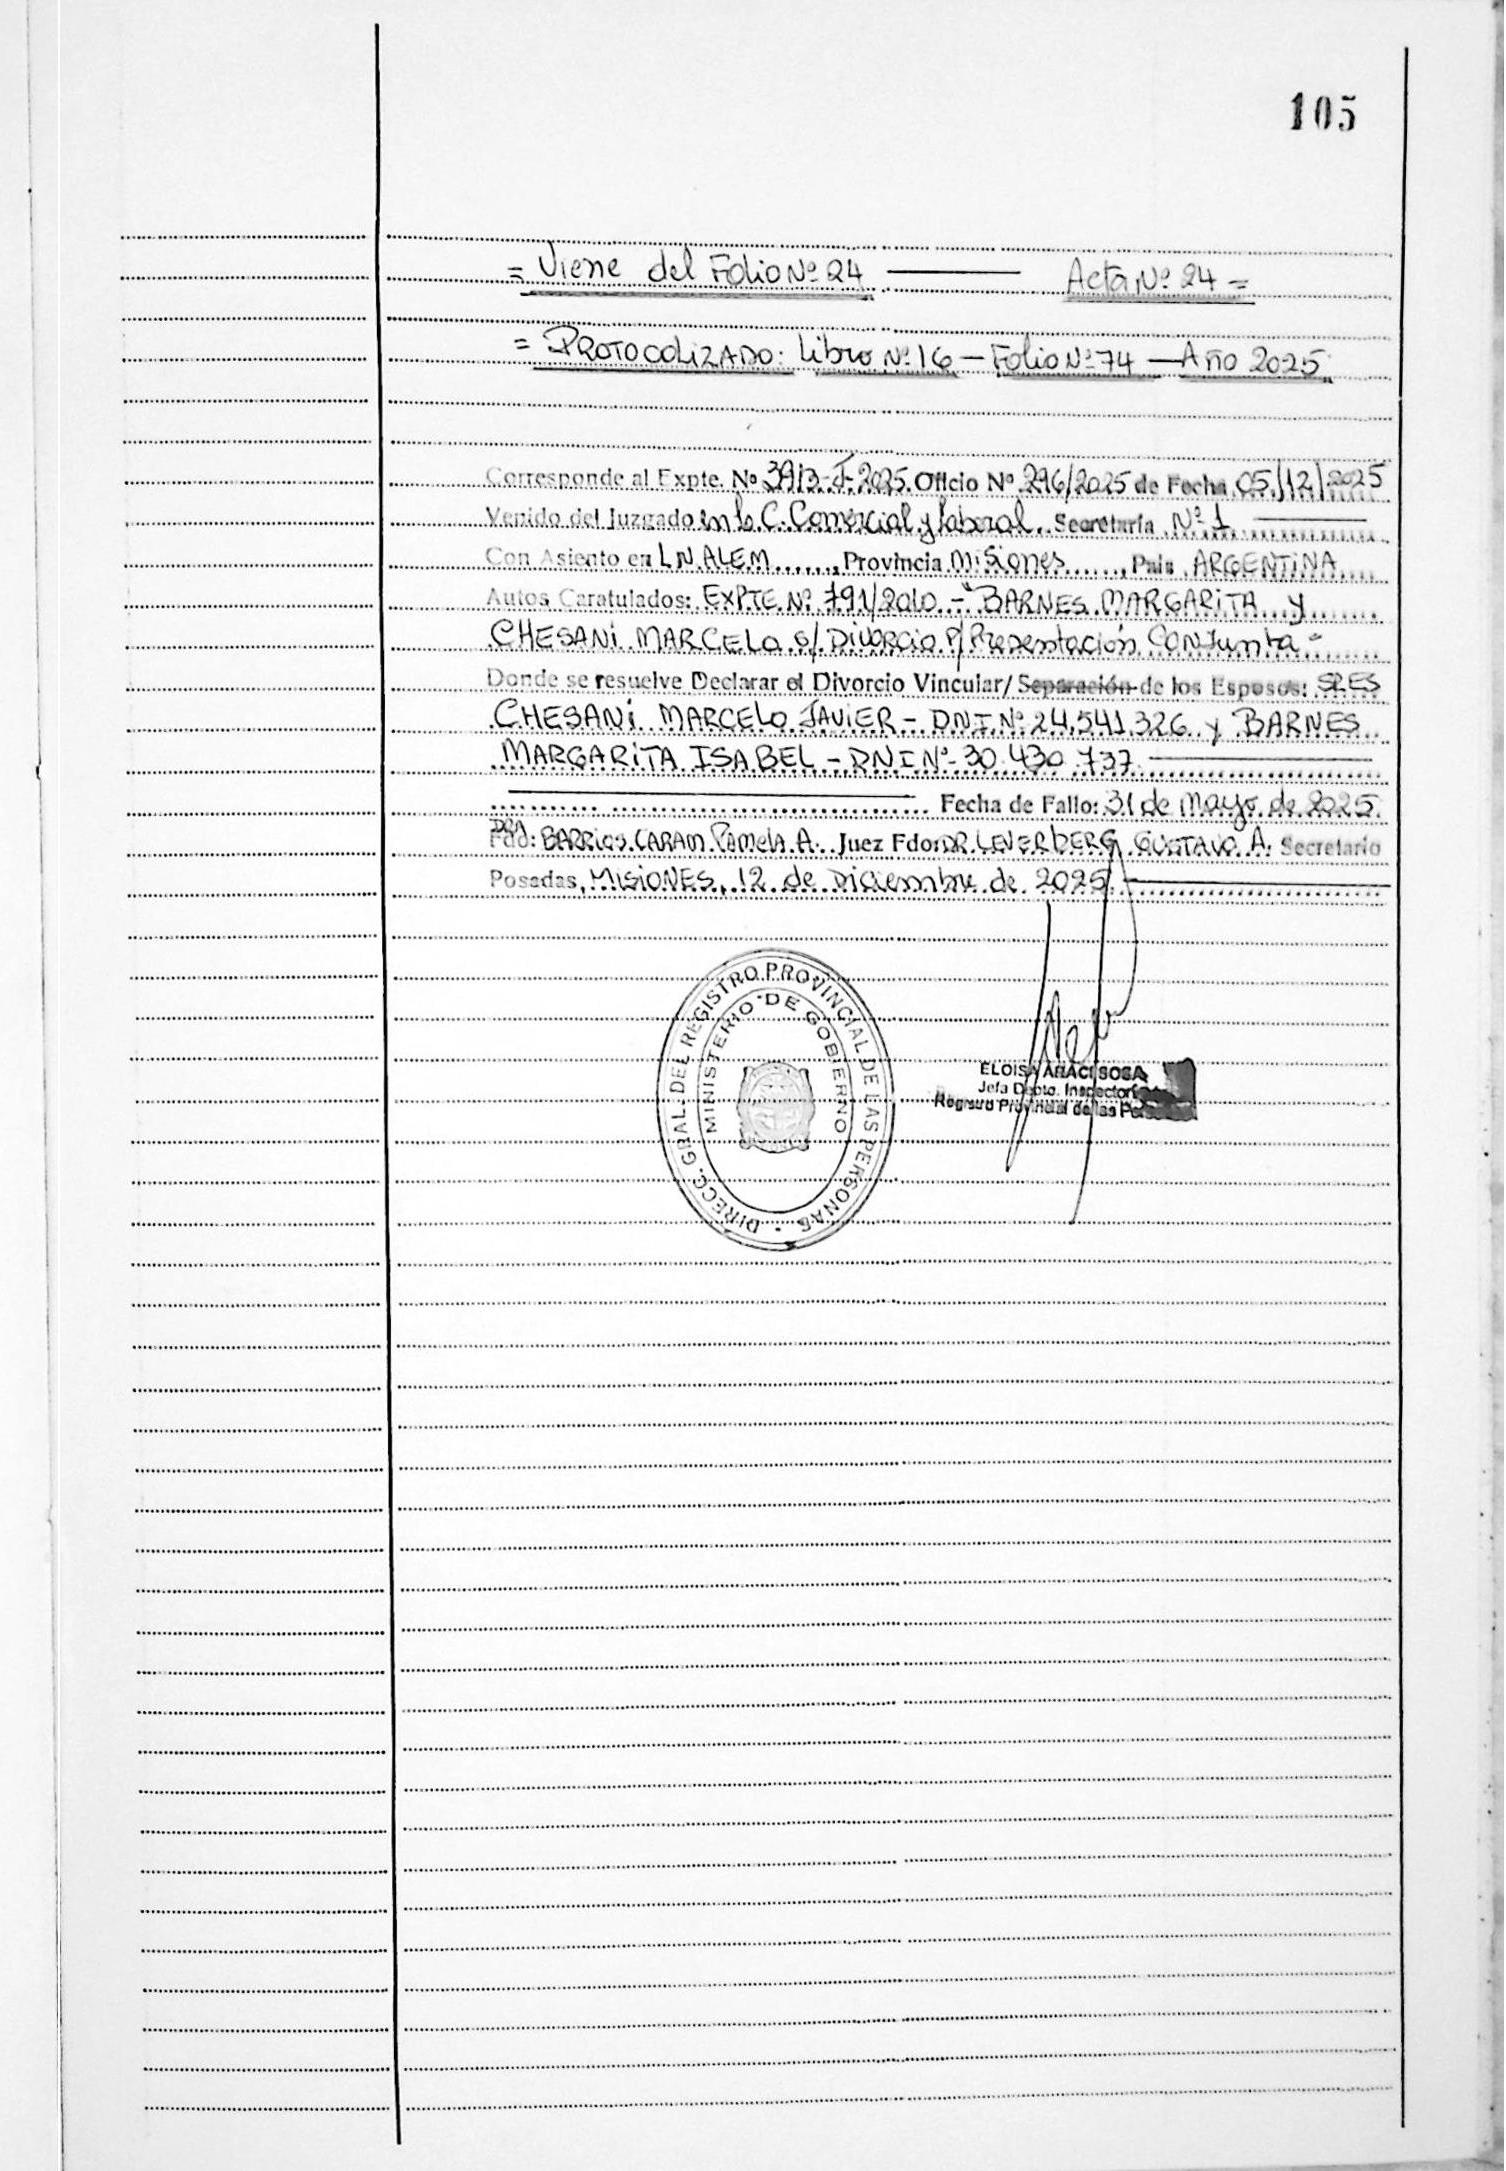 105
= Viene del Folio Nº 24 ——— Acta Nº 24 =
= PROTOCOLIZADO: Libro Nº 16 — Folio Nº 74 — Año 2025.
Corresponde al Expte. Nº 3913-J-2025. Oficio Nº 296/2025 de Fecha 05/12/2025
Venido del Juzgado en lo C. Comercial y laboral. Secretaría Nº 1
Con Asiento en L.N. ALEM ......, Provincia Misiones ......, Pais ARGENTINA
Autos Caratulados: EXPTE Nº 791/2010 - "BARNES MARGARITA y
CHESANI MARCELO s/ Divorcio P/ Presentación CONJunta"
Donde se resuelve Declarar el Divorcio Vincular/ Separación de los Esposos: SRES
CHESANI MARCELO JAVIER - DNI. Nº 24.541.326 y BARNES
MARGARITA ISABEL - DNI Nº 30.430.737
Fecha de Fallo: 31 de Mayo de 2025.
DRA
Fdo: BARRIOS CARAM Pamela A. Juez Fdo: DR. LEVERBERG GUSTAVO A. Secretario
Posadas, MISIONES, 12 de Diciembre de 2025
DIRECC. GRAL. DEL REGISTRO PROVINCIAL DE LAS PERSONAS
MINISTERIO DE GOBIERNO
ELOISA ARACI SOSA
Jefa Depto. Inspectoría
Registro Provincial de las